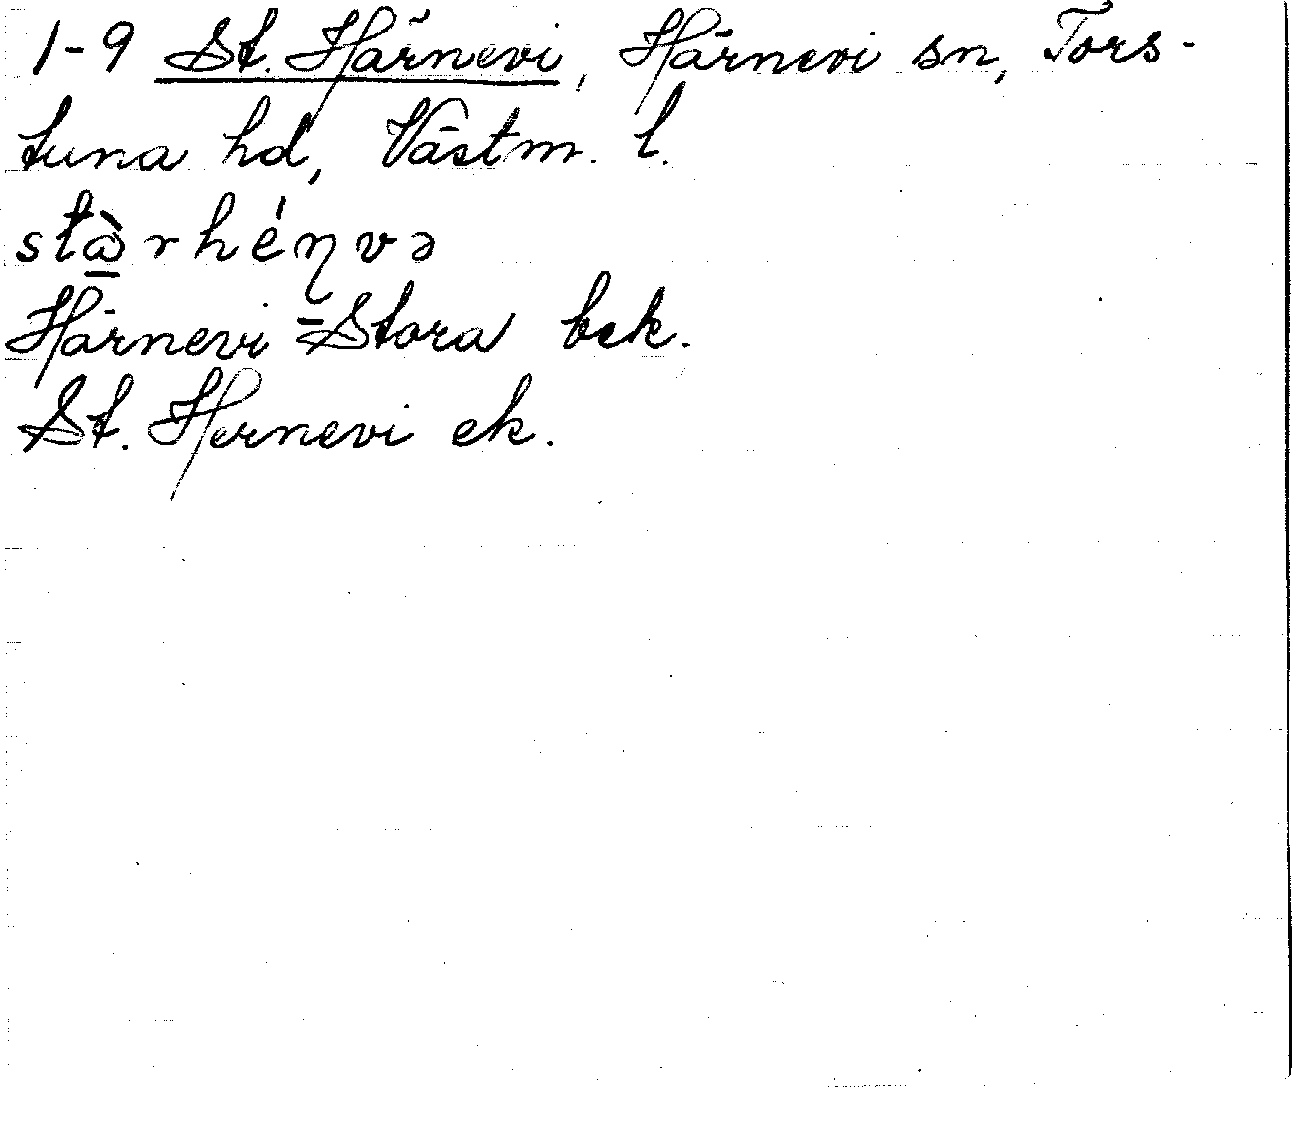 1-9 St. Härnevi, Härnevi sn, Tors-
tuna hd, Västm. l.
stą̀rhéɳvə
Härnevi =Stora bek.
St. Hernevi ek.